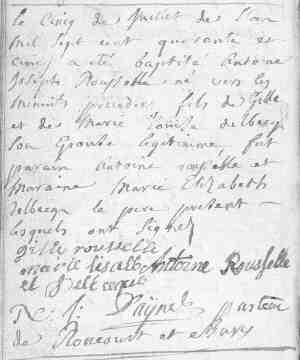 Le Cinq de Juillet de l'an
mil sept cent quarante et
cinq a été baptisé Antoine
Joseph Rousselle né vers les
minuits précédent fils de Gille
et de Marie Louise delbecq
son épouse legitime, fut
parain Antoine rousselle et
Maraine Marie Elizabeth
delbecq le père présent
lesquels ont signez
gille rousselle
marie lisabe Antoine Rousselle
et
N: J: Paÿnel pasteur
de Roncourt et